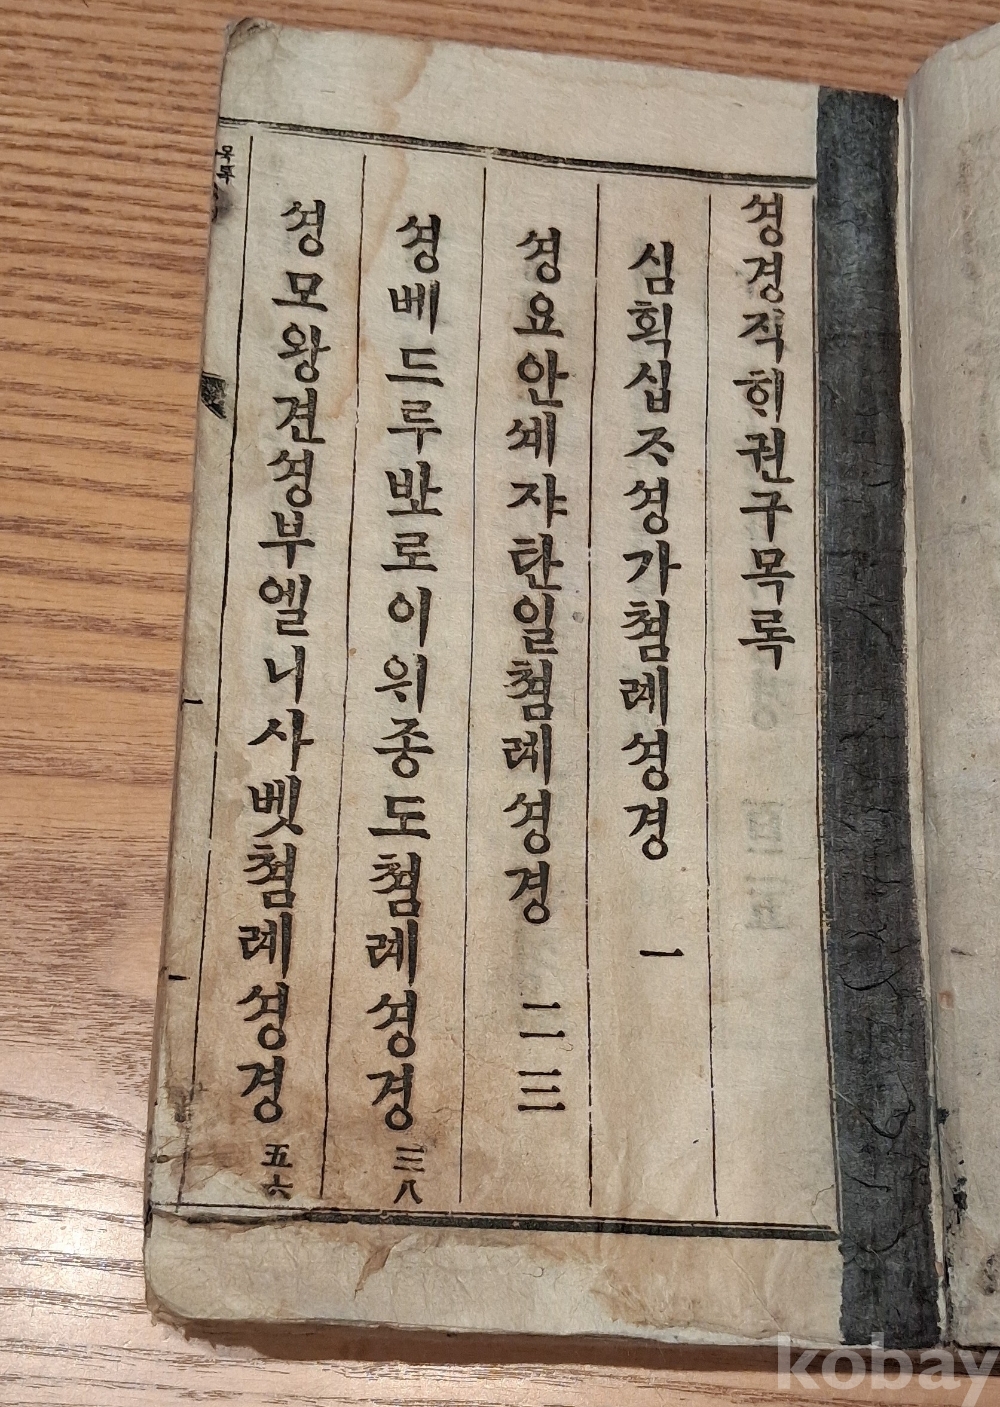 셩경직ᄒᆡ권구목록
심획십ᄌᆞ셩가쳠례셩경 一
셩요안셰쟈탄일쳠례셩경 二三
셩베드루ᄇᅶ로이위종도쳠례셩경 三八
셩모왕견셩부엘니사벳쳠례셩경 五六
목록
kobay